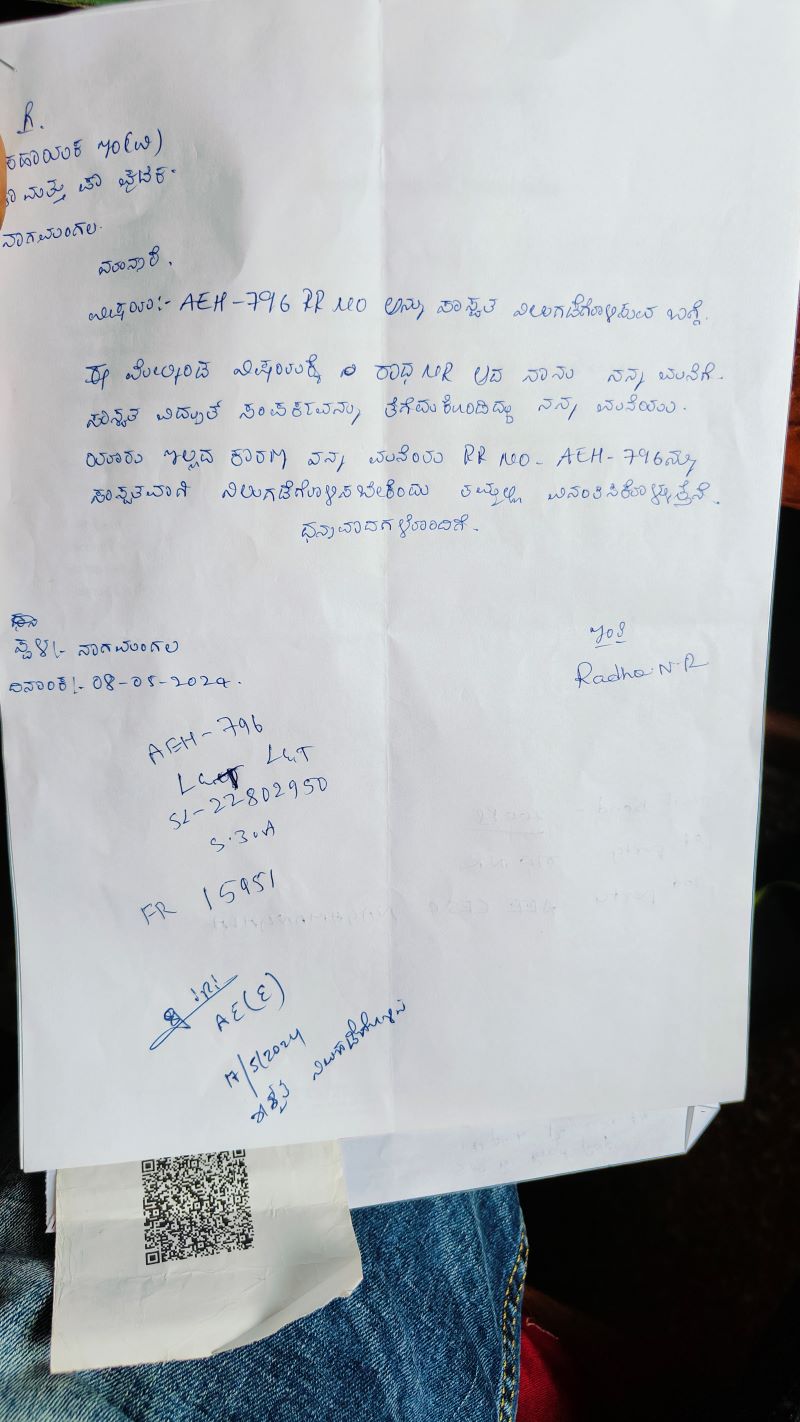 ಗೆ.
ಸಹಾಯಕ ಇಂ(ವಿ)
ಮತ್ತು ಪಾ ಘಟಕ.
ನಾಗಮಂಗಲ.
ಮಾನ್ಯರೆ.
ವಿಷಯ:- AEH-796 RR NO ಅನ್ನು ಶಾಸ್ವತ ನಿಲುಗಡೆಗೊಳಿಸುವ ಬಗ್ಗೆ.
ಈ ಮೇಲ್ಕಂಡ ವಿಷಯಕ್ಕೆ ರಾಧ NR ಆದ ನಾನು ನನ್ನ ಮನೆಗೆ.
ವಿದ್ಯುತ್ ಸಂಪರ್ಕವನ್ನು ತೆಗೆದುಕೊಂಡಿದ್ದು ನನ್ನ ಮನೆಯಲಿ.
ಯಾರು ಇಲ್ಲದ ಕಾರಣ ನನ್ನ ಮನೆಯ RR NO- AEH-796ನ್ನು
ಸಾಸ್ವತವಾಗಿ ನಿಲುಗಡೆಗೊಳಿಸಬೇಕೆಂದು ತಮ್ಮಲ್ಲಿ ವಿನಂತಿಸಿಕೊಳ್ಳುತ್ತೇನೆ.
ಧನ್ಯವಾದಗಳೊಂದಿಗೆ.
ಸ್ಥಳ:- ನಾಗಮಂಗಲ
ದಿನಾಂಕ:- 08-05-2024.
ಇಂತಿ
Radha.N.R
AEH-796
L&T
SL-22802950
5-30A
FR 15951
AE(E)
17/5/2024
ಶಾಶ್ವತ ನಿಲುಗಡೆಗೊಳಿಸಿ